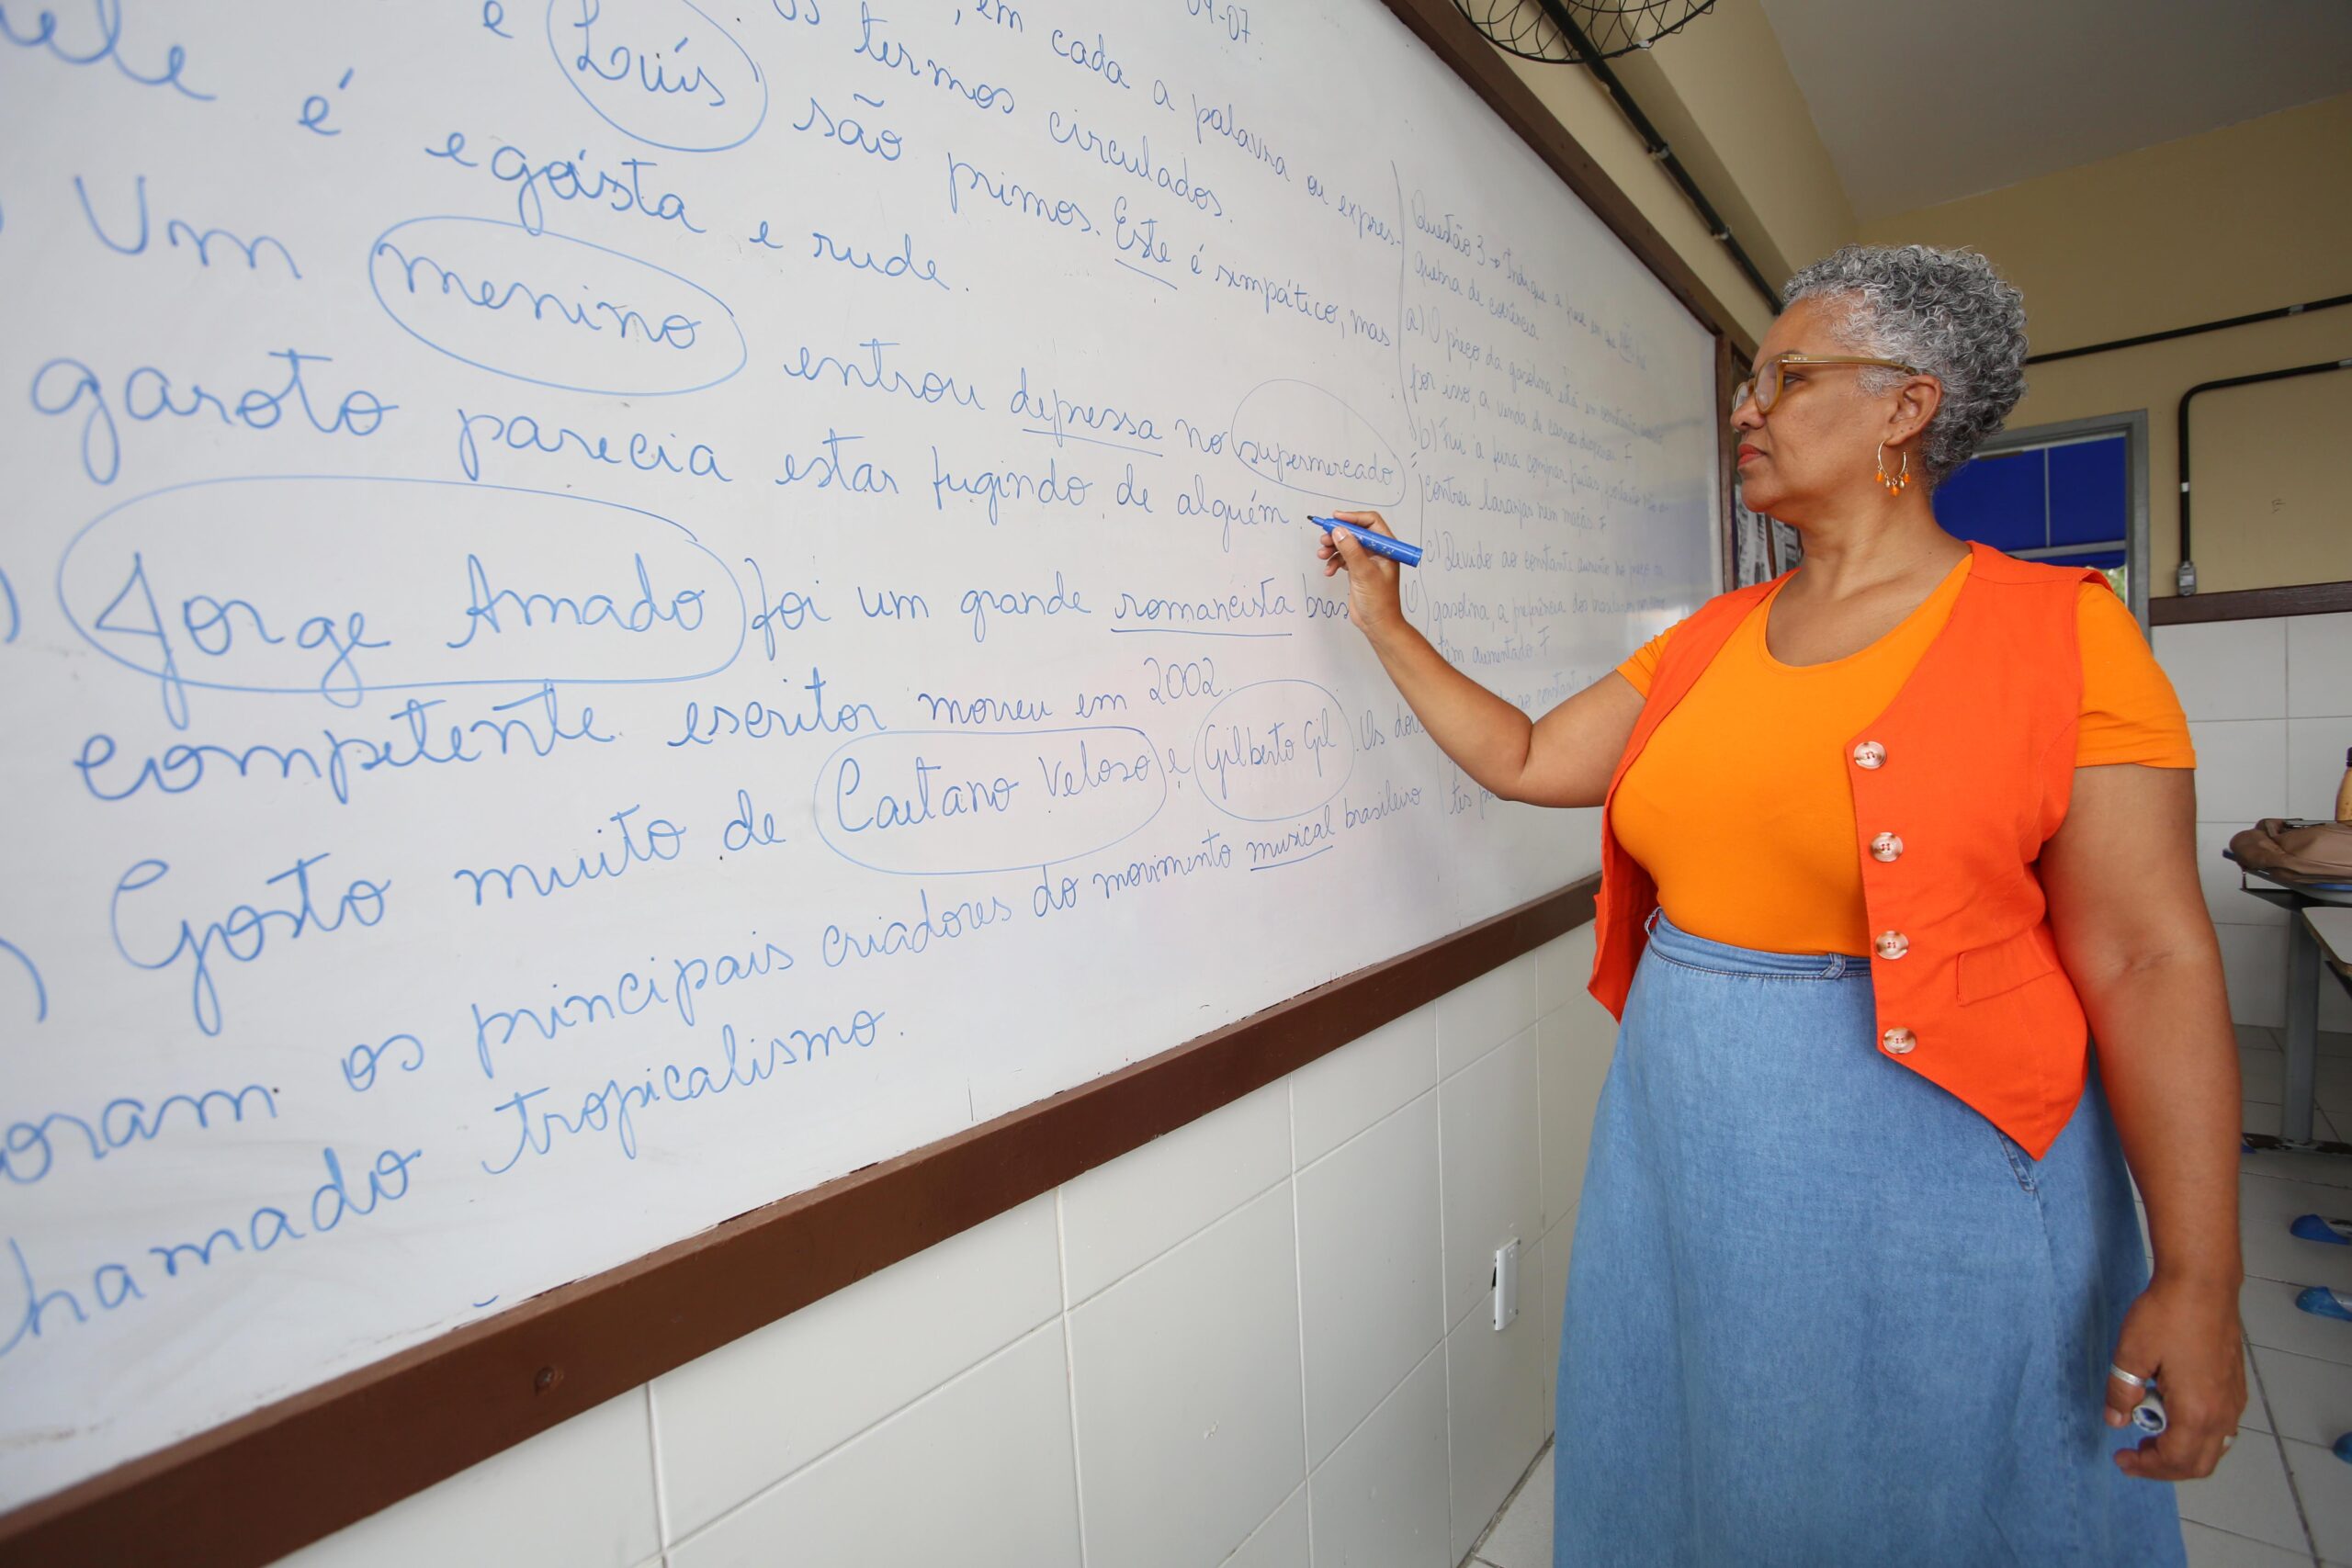 04-07
, em cada a palavra ou expres-
Os termos circulados.
e Luís são primos. Este é simpático, mas
é egoísta e rude.
Um menino entrou depressa no supermercado.
garoto parecia estar fugindo de alguém.
Jorge Amado foi um grande romancista bras
competente escritor morreu em 2002.
Gosto muito de Caetano Veloso e Gilberto Gil. Os dois
foram os principais criadores do movimento musical brasileiro
chamado tropicalismo.
Questão 3 → Indique a
quebra de coerência.
a) O preço da gasolina está em constante
por isso, a venda de carros
b) Fui à feira comprar frutas,
contrei laranjas nem maçãs. F
c) Devido ao constante aumento no preço da
gasolina, a preferência dos
têm aumentado. F